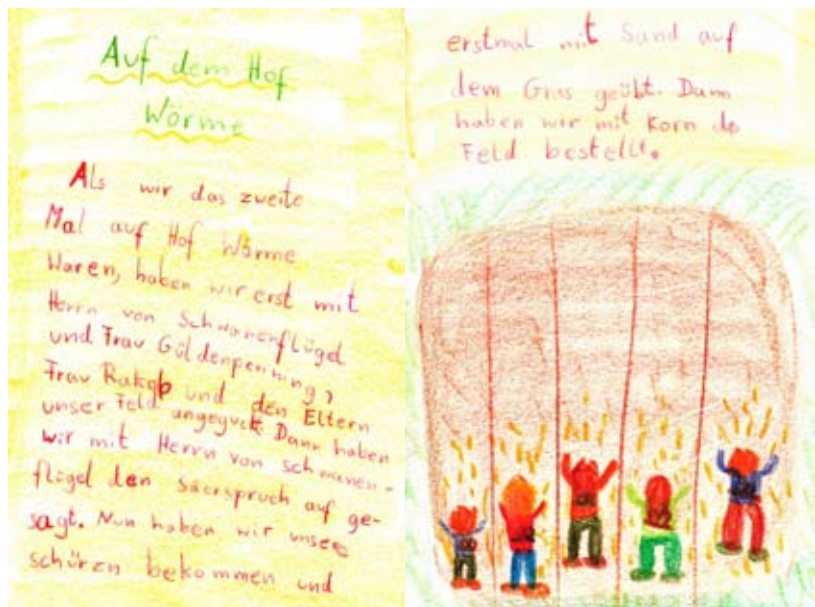 Auf dem Hof
Wörme
Als wir das zweite
Mal auf Hof Wörme
Waren, haben wir erst mit
Herrn von Schwanenflügel
und Frau Güldenpenning,
Frau Rakob und den Eltern
unser Feld angeguckt. Dann haben
wir mit Herrn von schwanen-
flügel den Säerspruch auf ge-
sagt. Nun haben wir unsee
schürzen bekommen und
erstmal mit Sand auf
dem Gras geübt. Dann
haben wir mit Korn da
Feld bestellt.